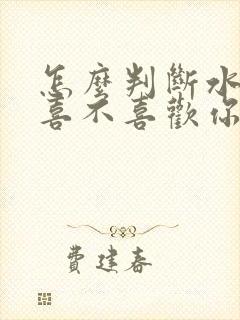 怎麼判斷水
喜不喜歡你
費建春